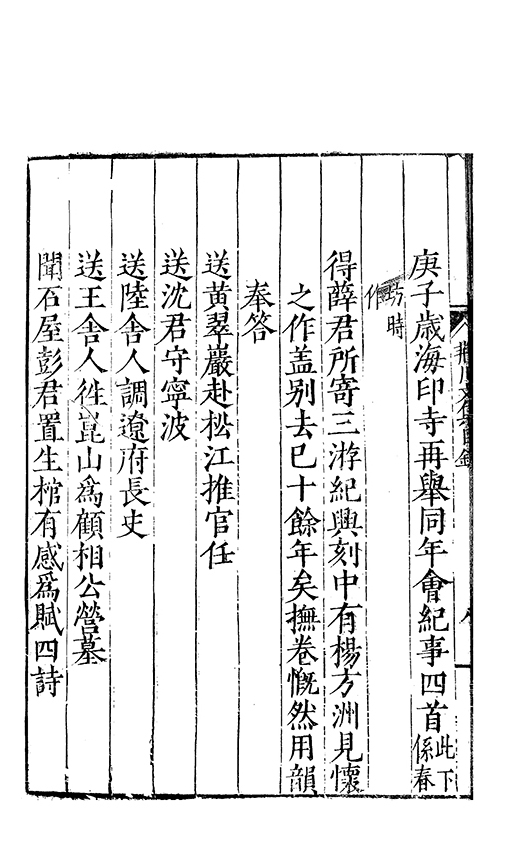 庚子歲海印寺再舉同年會紀事四首此下係春
坊時作
得薛君所寄三游紀興刻中有楊方洲見懷
之作盖别去已十餘年矣撫卷慨然用韻
奉答
送黄翠巖赴松江推官任
送沈君守寧波
送陸舍人調遼府長史
送王舍人徃崑山為顧相公營墓
聞石屋彭君置生棺有感為賦四詩